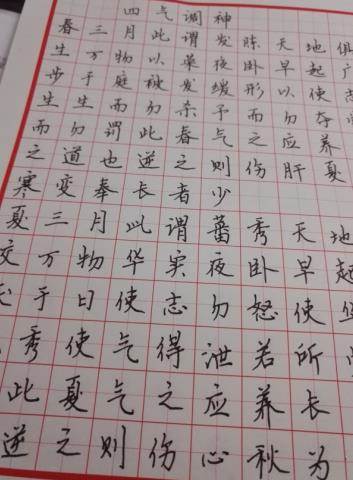 四气调神
春三月此谓发陈天地俱
生万物以荣夜卧早起广
步于庭被发缓形以使志
生生而勿杀予而勿夺
而勿罚此春气之应养
之道也逆之则伤肝夏
寒变奉长者少
夏三月此谓蕃秀天地
交万物华实夜卧早起
于日使志勿怒使
秀使气得泄若所
此夏气之应养长
逆之则伤心秋为